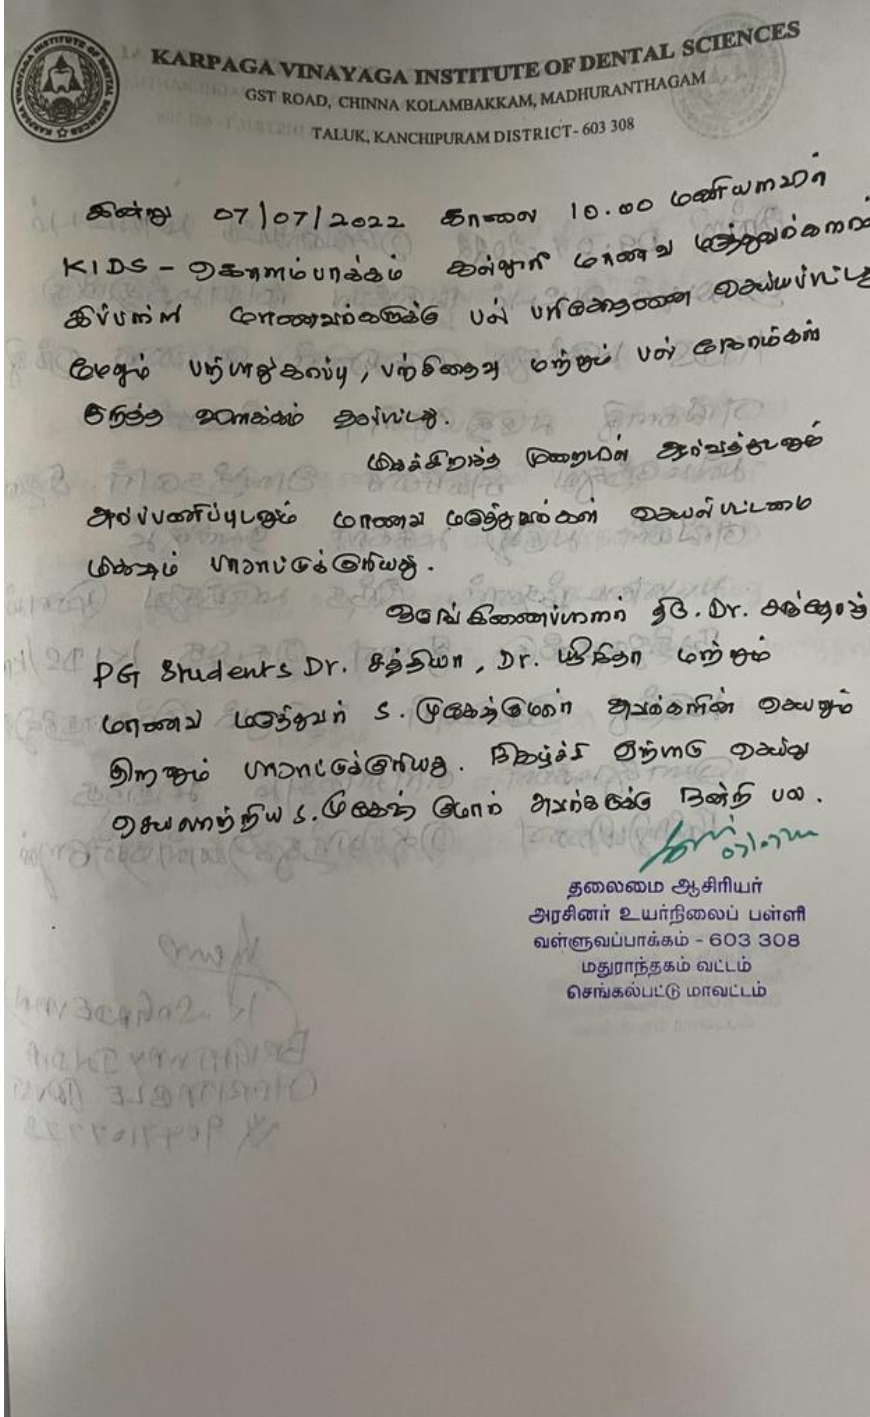 KARPAGA VINAYAGA INSTITUTE OF DENTAL SCIENCES
GST ROAD, CHINNA KOLAMBAKKAM, MADHURANTHAGAM
TALUK, KANCHIPURAM DISTRICT- 603 308
இன்று 07/07/2022 காலை 10.00 மணியளவில்
KIDS - கொளம்பாக்கம் கல்லூரி மாணவ மருத்துவர்களால்
இப்பள்ளி மாணவர்களுக்கு பல் பரிசோதனை செய்யப்பட்டது
மேலும் பற்பாதுகாப்பு, பற்சிதைவு மற்றும் பல் நோய்கள்
குறித்த விளக்கம் தரப்பட்டது.
மிகச்சிறந்த முறையில் ஆர்வத்துடனும்
அர்ப்பணிப்புடனும் மாணவ மருத்துவர்கள் செயல்பட்டமை
மிகவும் பாராட்டுக்குரியது.
ஒருங்கிணைப்பாளர் திரு. Dr. சந்தோஷ்
PG Students Dr. சத்தியா, Dr. ஸ்ரீநிதா மற்றும்
மாணவ மருத்துவர் S. முகேஷ்குமார் அவர்களின் செயலும்
திறனும் பாராட்டுக்குரியது. நிகழ்ச்சி ஏற்பாடு செய்து
செயலாற்றிய S. முகேஷ் குமார் அவர்களுக்கு நன்றி பல.
தலைமை ஆசிரியர்
அரசினர் உயர்நிலைப் பள்ளி
வள்ளுவப்பாக்கம் - 603 308
மதுராந்தகம் வட்டம்
செங்கல்பட்டு மாவட்டம்